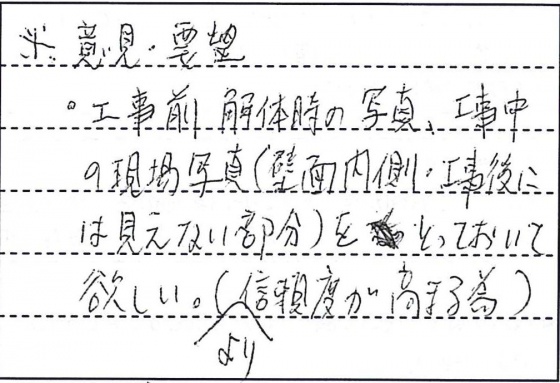 ※ 意見・要望
。工事前 解体時の写真、工事中
の現場写真(壁面内側・工事後に
は見えない部分)をとっておいて
欲しい。(信頼度が高まる為)
より